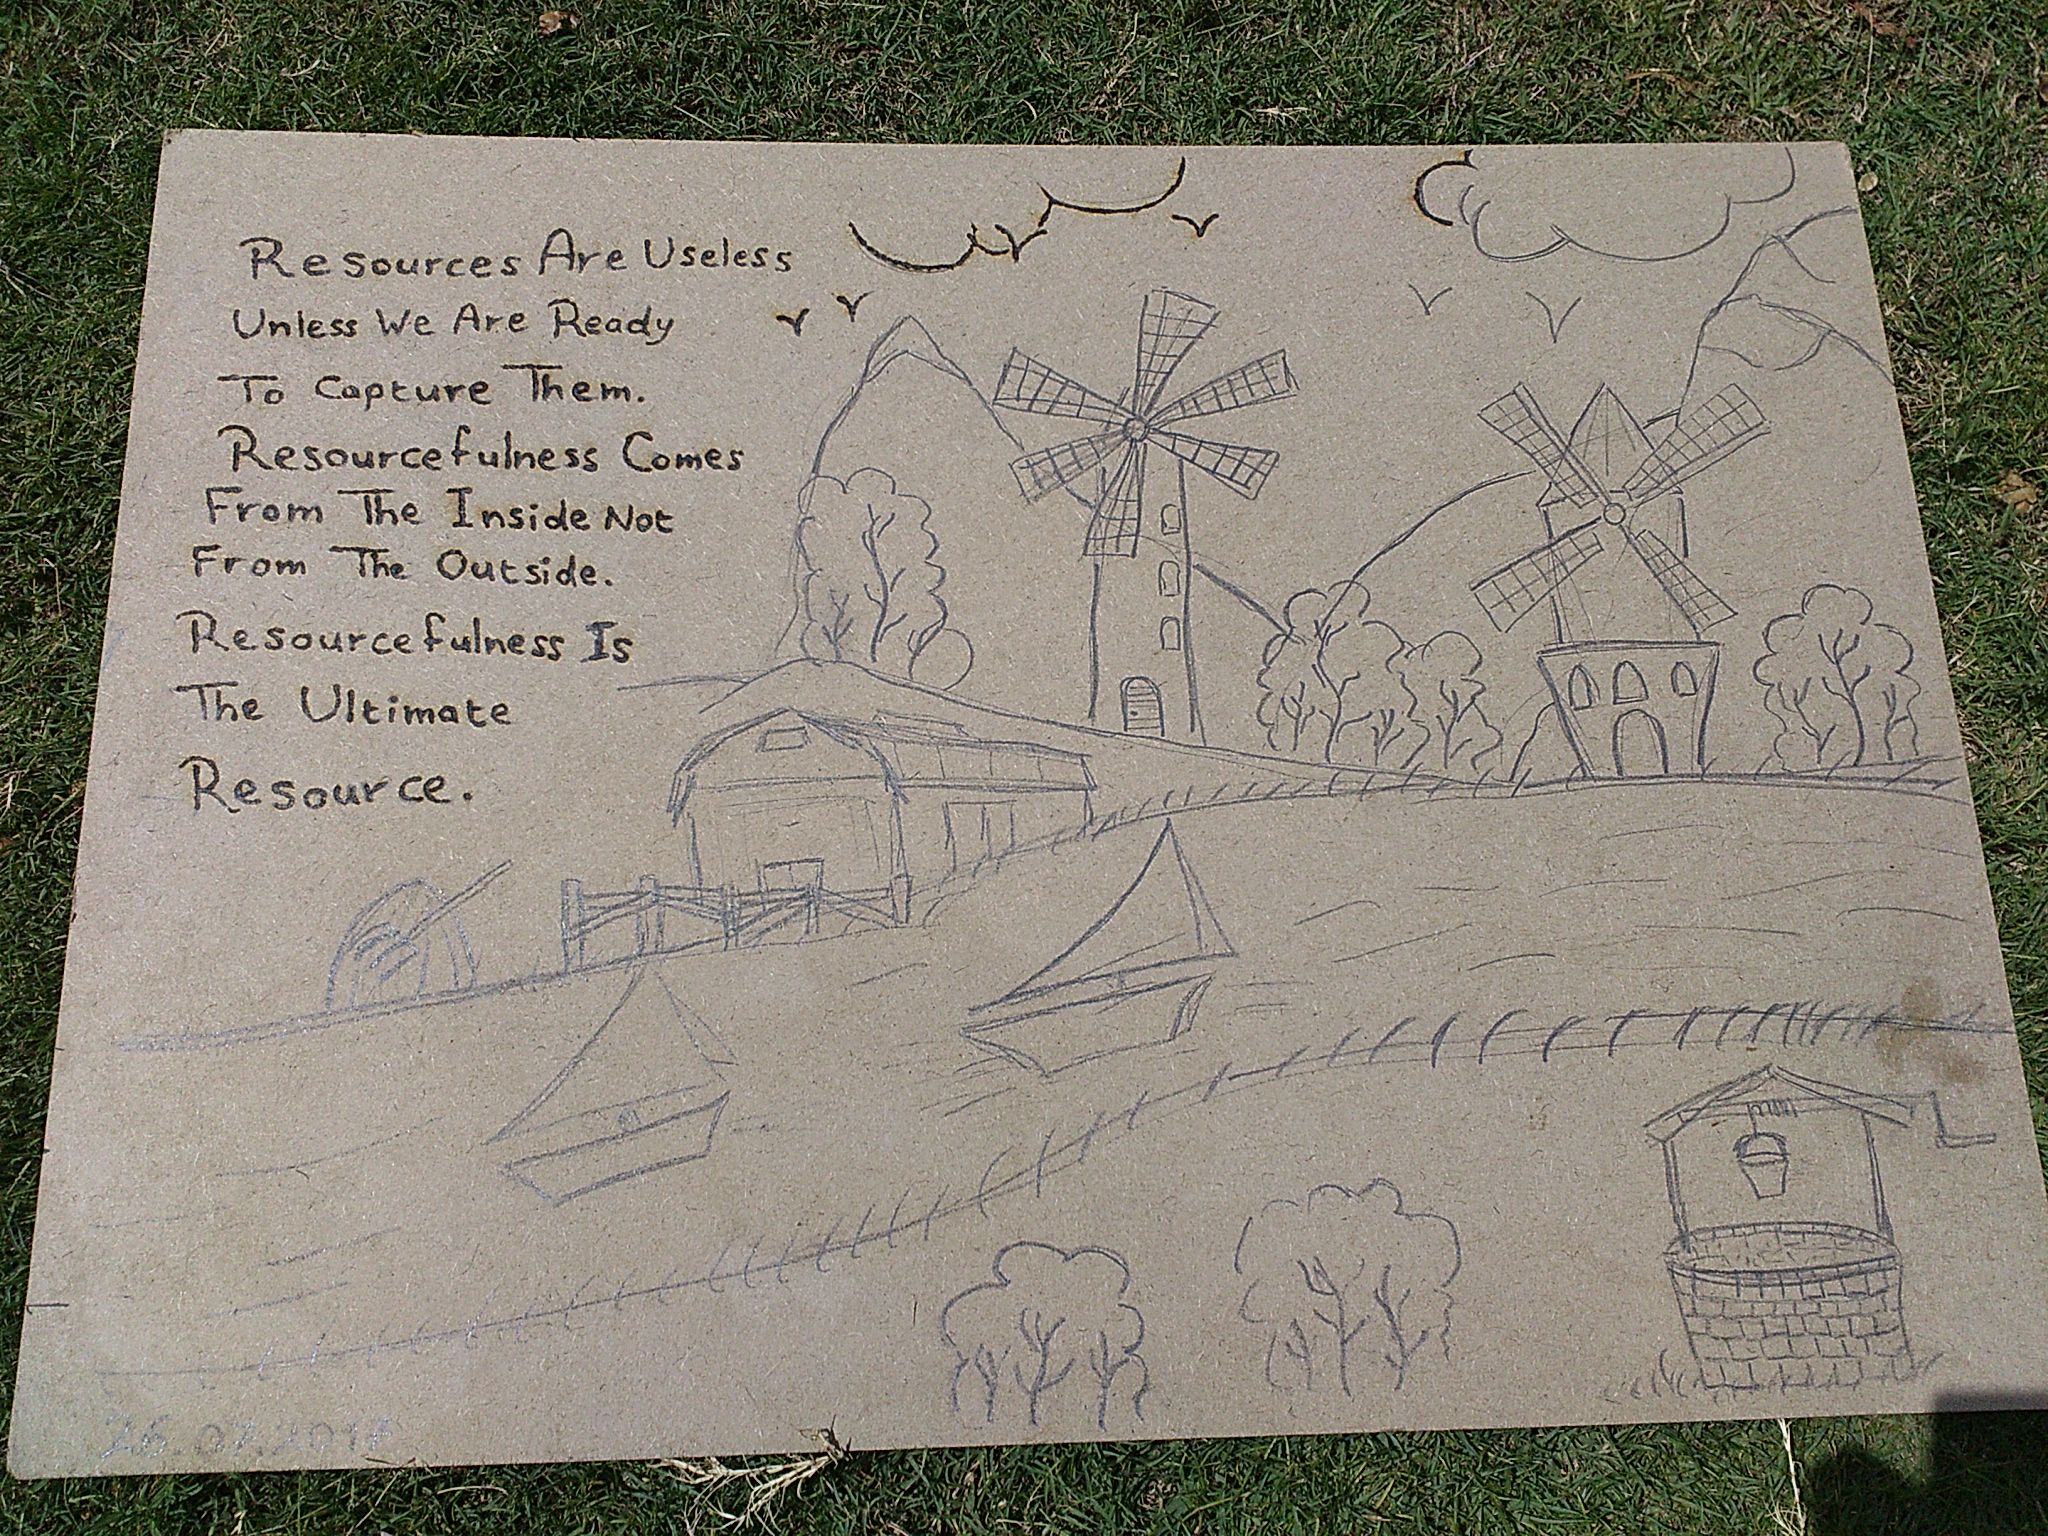 Resources Are Useless
Unless We Are Ready
To Capture Them.
Resourcefulness Comes
From The Inside Not
From The Outside.
Resourcefulness Is
The Ultimate
Resource.
26.07.2017